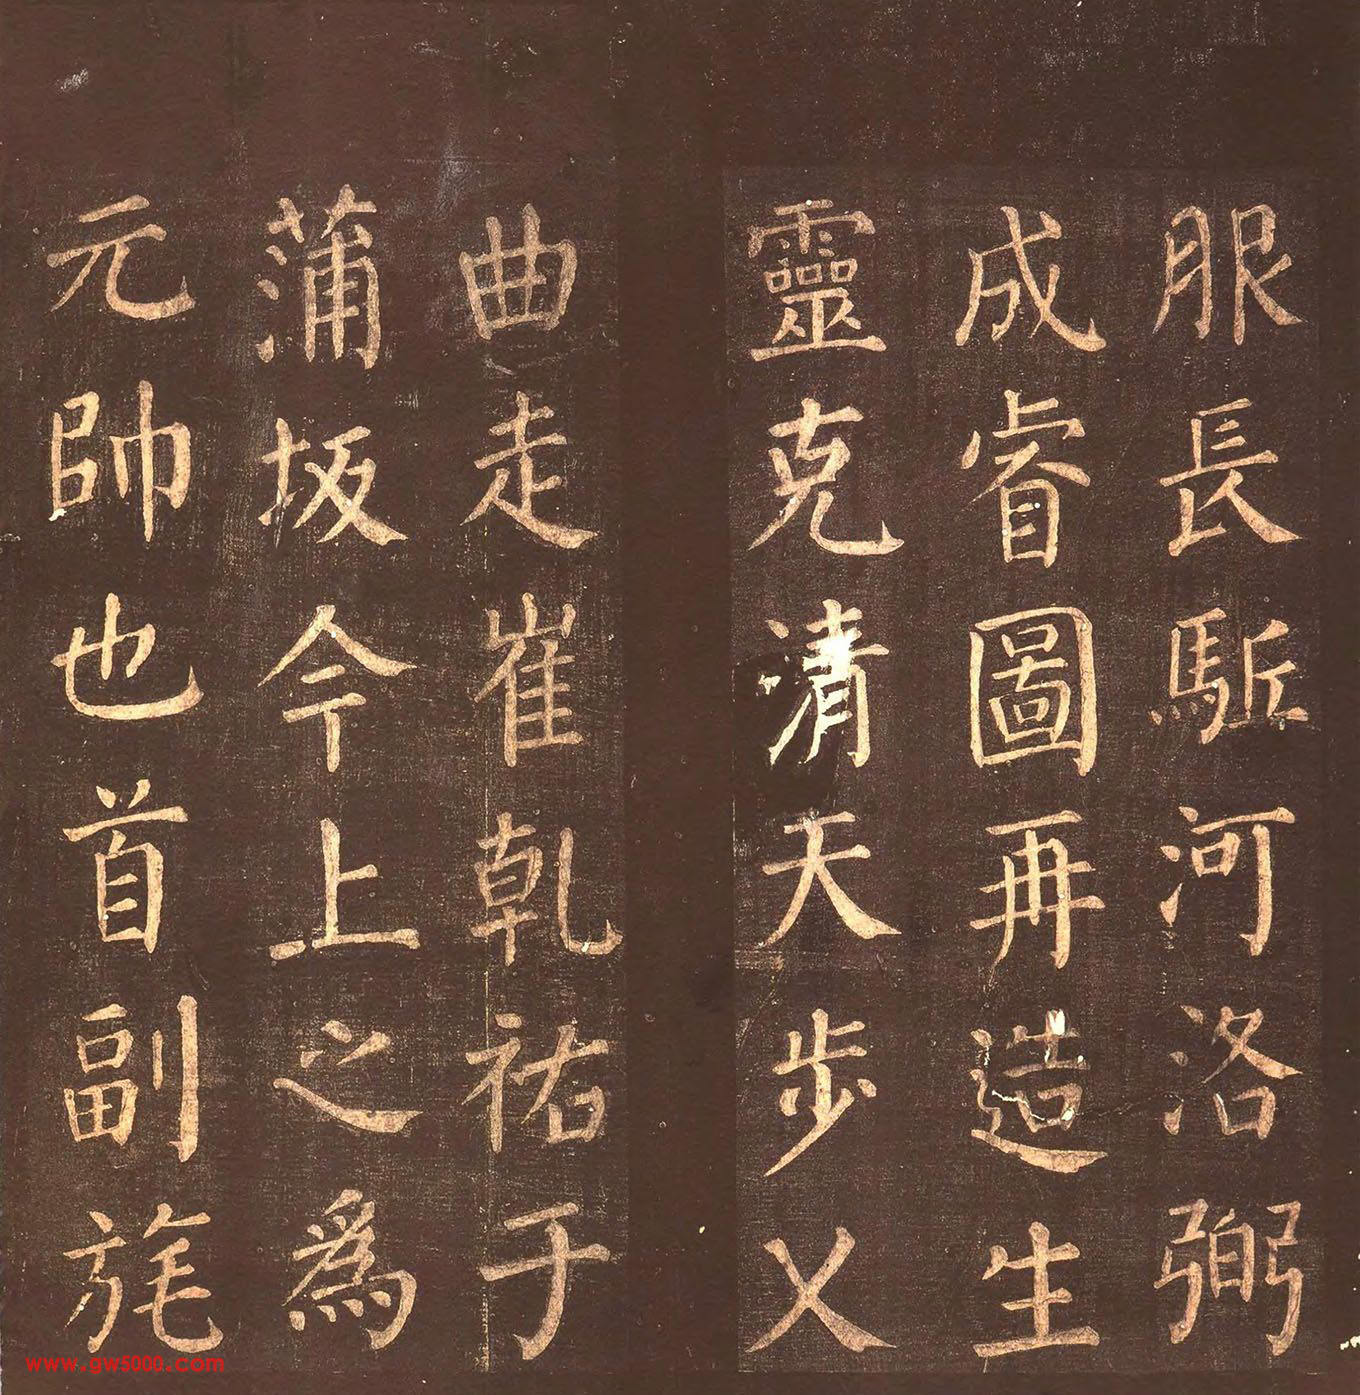 服長駈河洛弼
成睿圖再造生
靈克清天步乂
曲走崔乾祐于
蒲坂今上之為
元帥也首副旄
www.gw5000.com